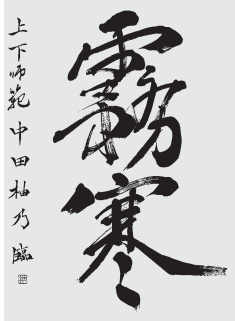 霧寒
上下师範 中田柚乃 臨